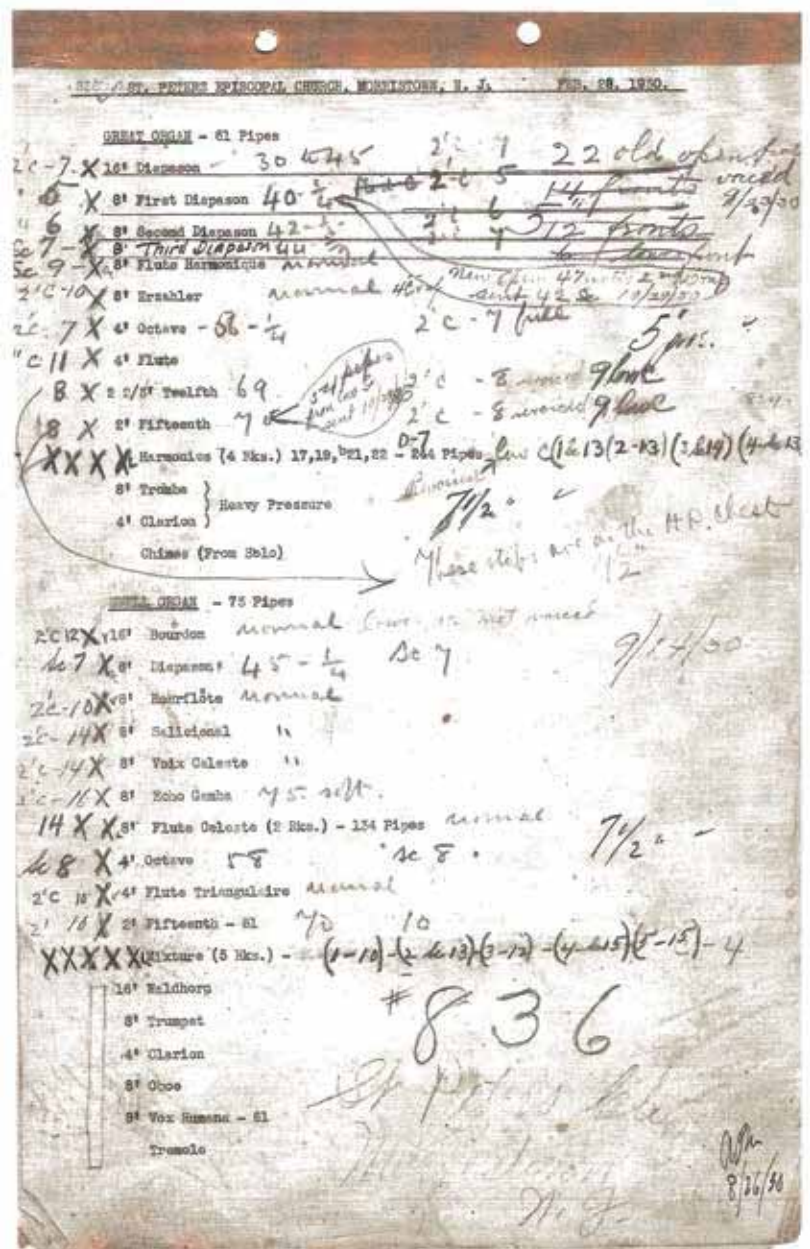 ST. PETERS EPISCOPAL CHURCH, MORRISTOWN, N. J. FEB. 28, 1930.
GREAT ORGAN - 61 Pipes
2'C-7 X 16' Diapason - 30 to 45 2'C 7 22 old open
X 8' First Diapason 40-1/4 2'C 5 fronts voiced
6 X 8' Second Diapason 42- 6 12 fronts 9/30/30
Sc 7 - X 8' Third Diapason 44 7
Sc 9 - X 8' Flute Harmonique normal
2'C-10 X 8' Erzahler normal
New Open 47 notes sent 42 Sc 10/29/30
2'C-7 X 4' Octave - 58 - 1/4 2'C - 7 full
"C 11 X 4' Flute 5"
8 X 2 2/3' Twelfth 69 2'C - 8 revoiced 9 low C
8 X 2' Fifteenth 70 2'C - 8 revoiced 9 low C
pipes sent
XXXX Harmonics (4 Rks.) 17,19,b21,22 - 244 Pipes D-7 low C (1 & 13 (2-13) (3 & 14) (4 & 13
Revoiced
8' Tromba }
Heavy Pressure 7 1/2 " "
4' Clarion }
Chimes (From Solo)
These stops are on the H.P. Chest
7 1/2"
SWELL ORGAN - 73 Pipes
2'C 12 X 16' Bourdon normal lower 12 not voiced
Sc 7 X 8' Diapason 45 - 1/4 Sc 7 9/14/30
2'C-10 X 8' Rohrflöte normal
2'C-14 X 8' Salicional "
2'C-14 X 8' Voix Celeste "
2'C-16 X 8' Echo Gamba 75 soft.
14 X X 8' Flute Celeste (2 Rks.) - 134 Pipes normal 7 1/2 " "
Sc 8 X 4' Octave 58 Sc 8
2'C 10 X 4' Flute Triangulaire normal
2' 16 X 2' Fifteenth - 61 70 10
XXXXX Mixture (5 Rks.) - (1-10)-(2 & 13)(3-12)-(4 & 15)(5-15)-4
16' Waldhorn
8' Trumpet #836
4' Clarion
8' Oboe
St Peters
8' Vox Humana - 61
Tremolo
Morristown
N. J.
8/26/30